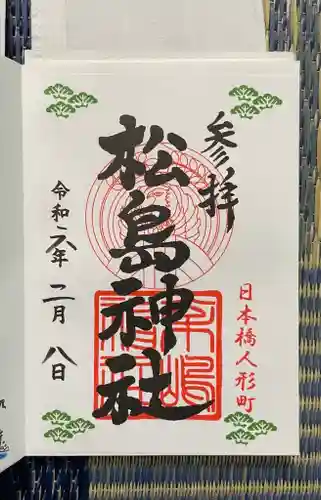 参拝
日本橋人形町
松島神社
令和元年二月八日